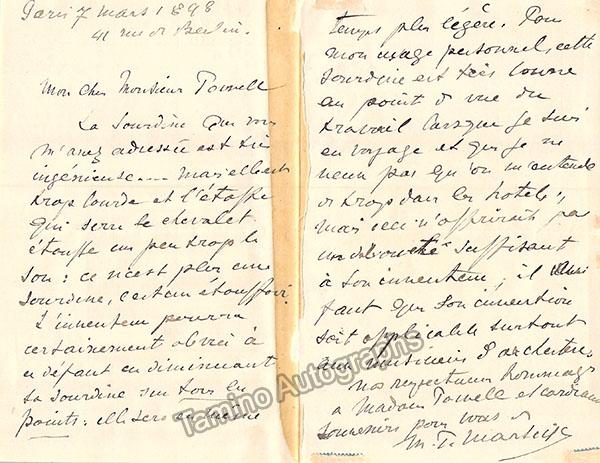 Paris 7 mars 1898
41 rue de Berlin.
Mon cher Monsieur Powell
La Sourdine que vous
m'avez adressée est très
ingénieuse.... mais elle est
trop lourde et l'étoffe
qui serre le chevalet
étouffe un peu trop le
son : ce n'est plus une
sourdine, c'est un étouffoir.
L'inventeur pourra
certainement obvier à
ce défaut en diminuant
sa sourdine sur tous les
points : elle sera en même
temps plus légère. Pour
mon usage personnel, cette
sourdine est très bonne
au point de vue du
travail lorsque je suis
en voyage et que je ne
veux pas qu'on m'entende
trop dans les hotels ;
mais ceci n'offrirait pas
un débouché suffisant
à son inventeur, il
faut que son invention
soit applicable surtout
aux musiciens d'orchestre.
Mes respectueux hommages
à Madame Powell et cordiaux
souvenirs pour vous de
M. P. Marsick
Tamino Autographs